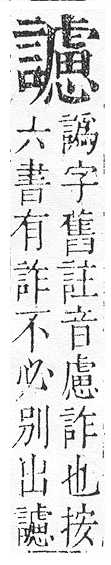 䥨
譌字舊註音慮詐也按
六書有詐不必別出䥨